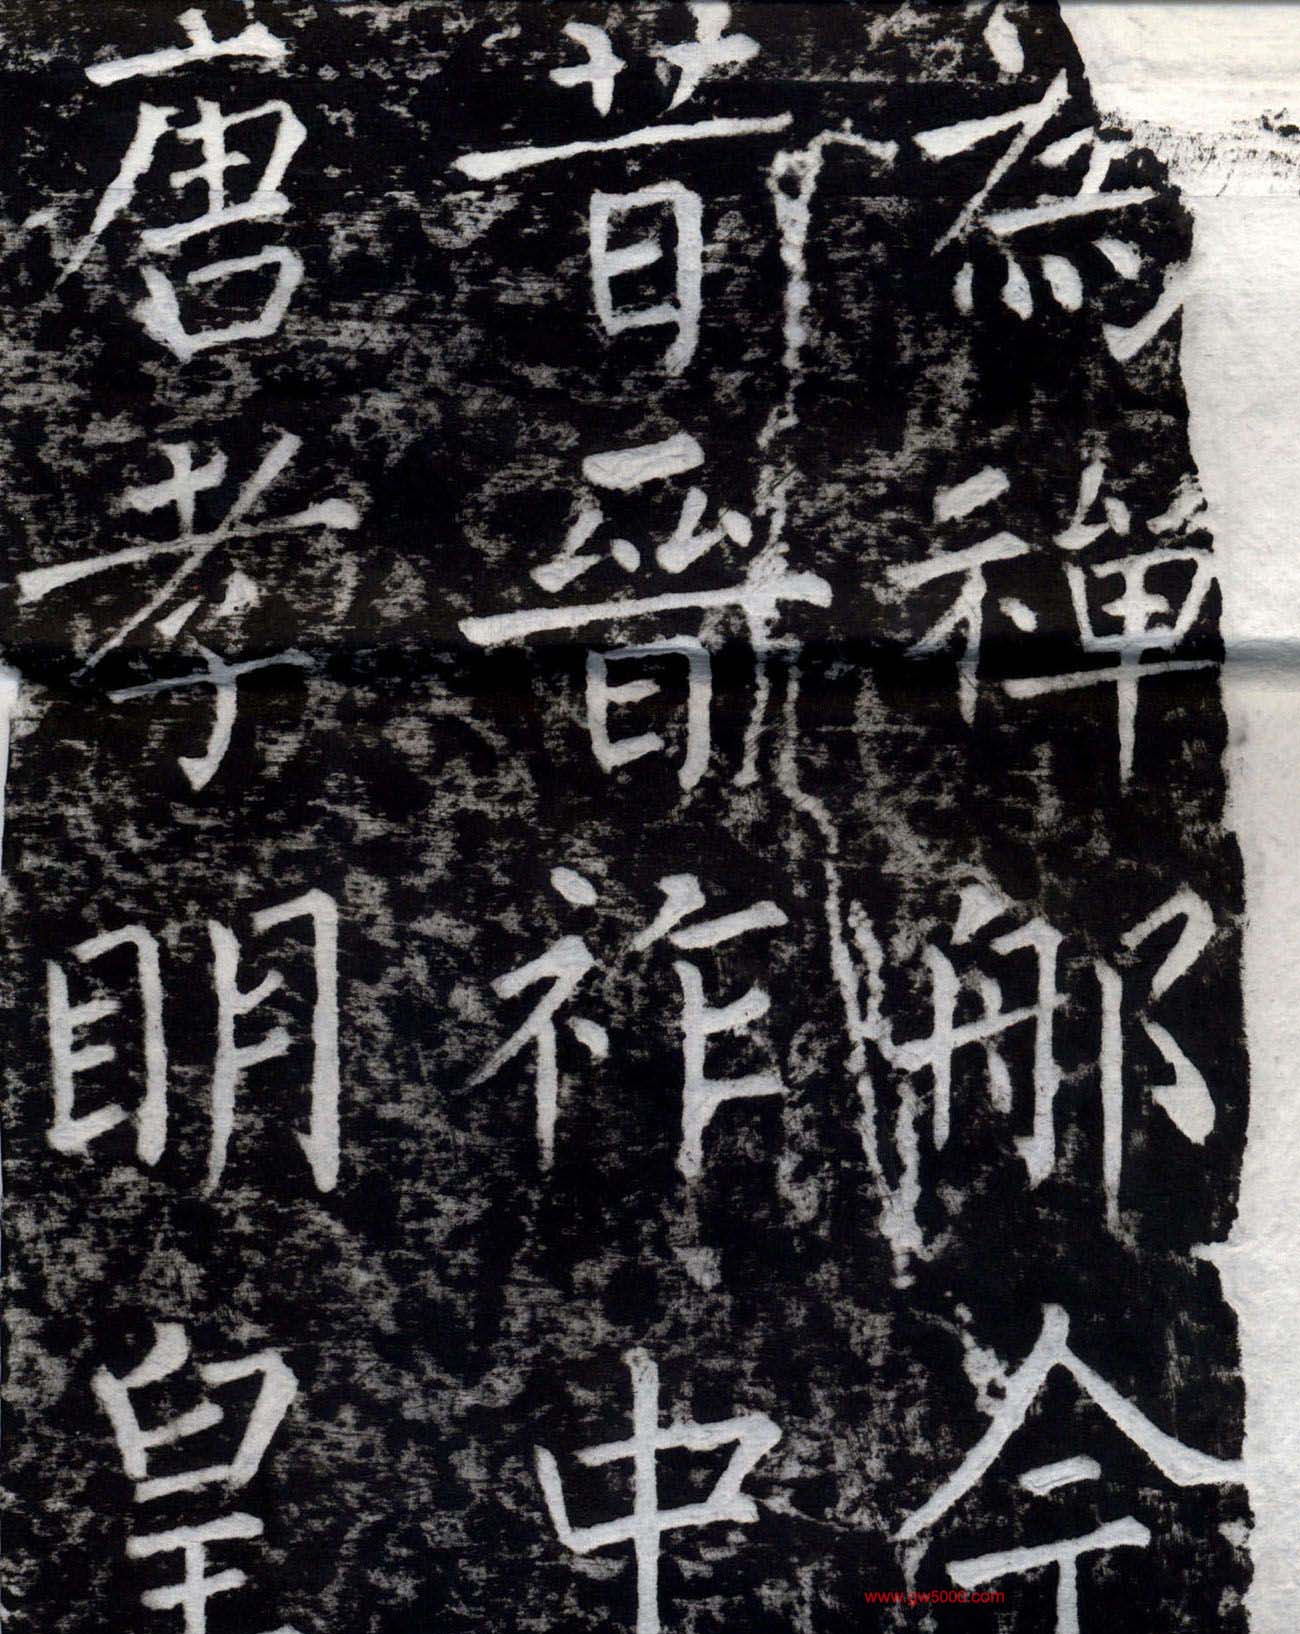 為禪那令
昔晉祚中
唐孝眀皇
www.gw5000.com